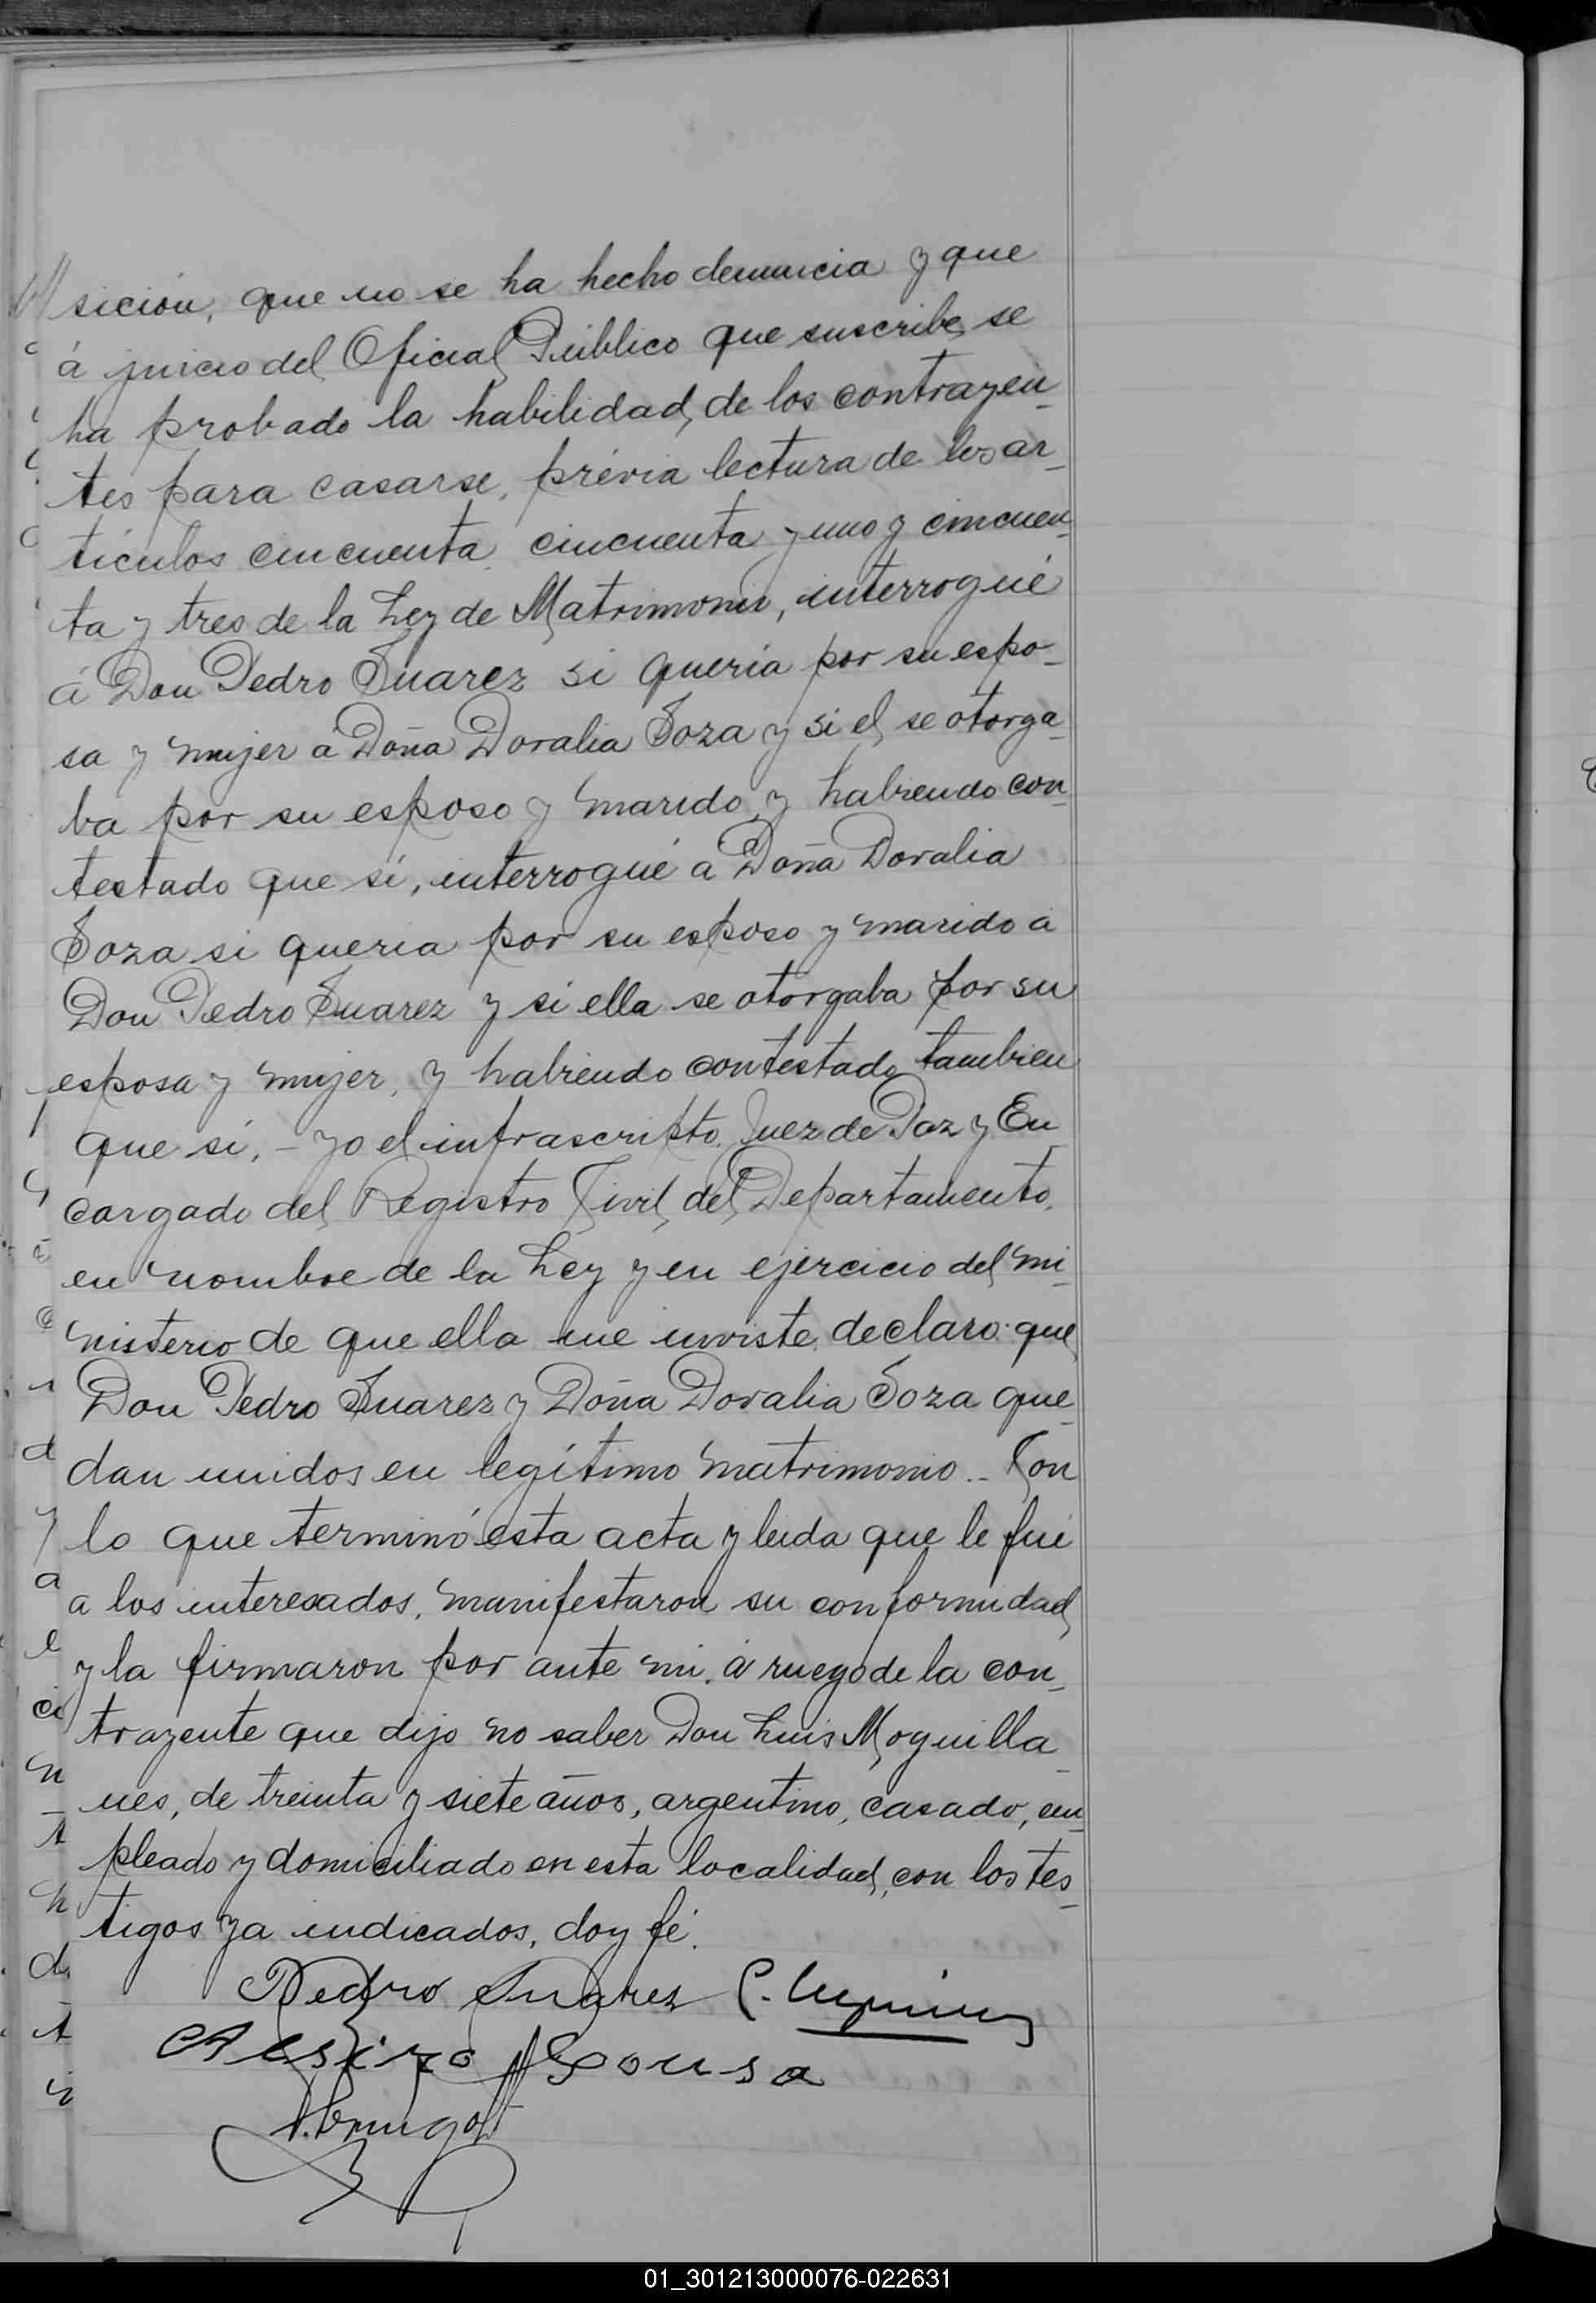 sición, que no se ha hecho denuncia y que
á juicio del Oficial Público que suscribe, se
ha probado la habilidad de los contrayen_
tes para casarse, prévia lectura de los ar_
tículos cincuenta, cincuenta y uno y cincuen_
ta y tres de la Ley de Matrimonio, interrogué
á Don Pedro Suarez si queria por su espo_
sa y mujer á Doña Doralia Soza y si el se otorga_
ba por su esposo y marido, y habiendo con_
testado que sí, interrogué a Doña Doralia
Soza si queria por su esposo y marido á
Don Pedro Suarez y si ella se otorgaba por su
esposa y mujer, y habiendo contestado tambien
que sí, - yo el infrascripto, Juez de Paz y En_
cargado del Registro Civil del Departamento,
en nombre de la Ley y en ejercicio del mi_
nisterio de que ella me inviste, declaro: que
Don Pedro Suarez y Doña Doralia Soza que_
dan unidos en legítimo matrimonio.- Con
lo que terminó esta acta y leida que le fué
a los interesados, manifestaron su conformidad
y la firmaron por ante mi, á ruego de la con_
trayente que dijo no saber Don Luis Moguilla_
nes, de treinta y siete años, argentino, casado, em_
pleado y domiciliado en esta localidad, con los tes_
tigos ya indicados, doy fé.
Pedro Suarez
Sousa
01_301213000076-022631